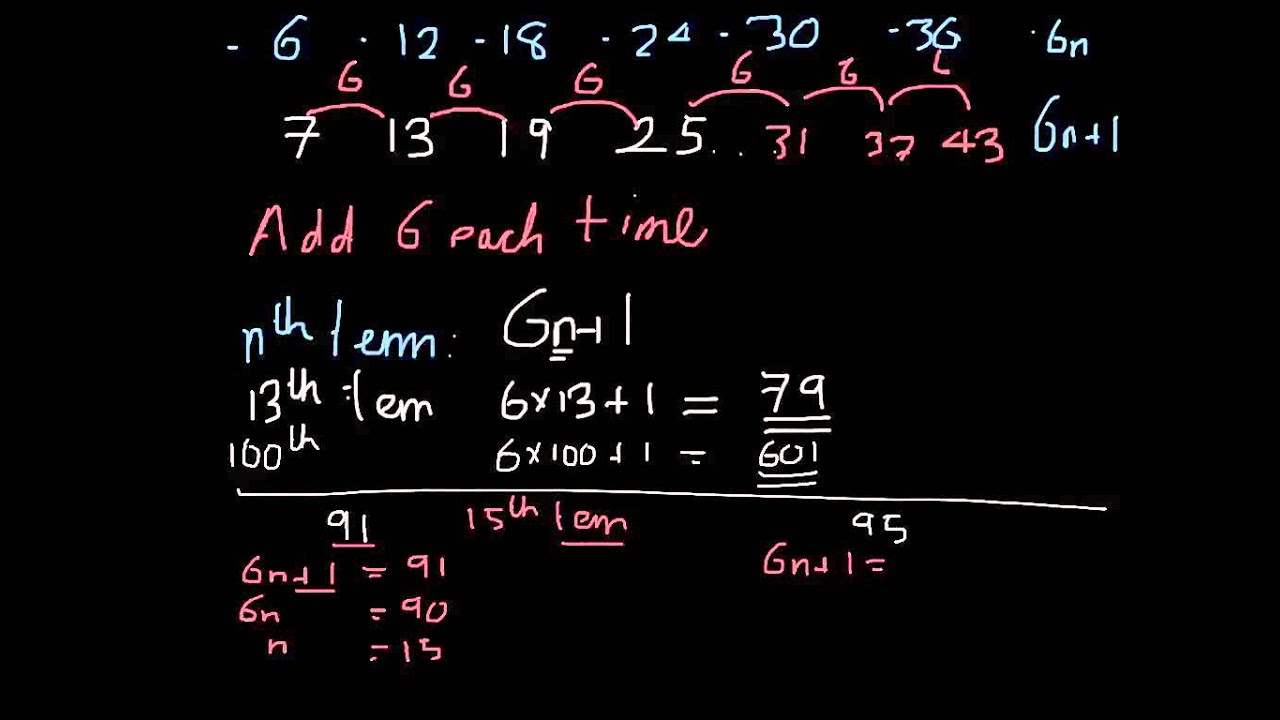 - 6 - 12 - 18 - 24 - 30 - 36 · 6n
6 6 6 6 6 6
7 13 19 25 . . . 31 37 43 6n+1
Add 6 each time
nth term: 6n+1
13th term 6×13+1 = 79
100th 6×100+1 = 601
91 15th term 95
6n+1 = 91 6n+1 =
6n = 90
n = 15